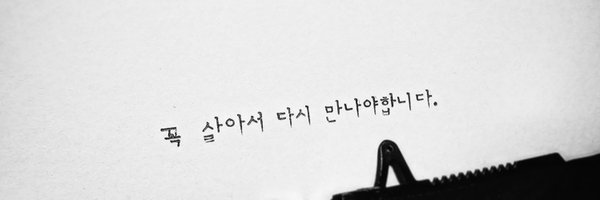 꼭 살아서 다시 만나야합니다.